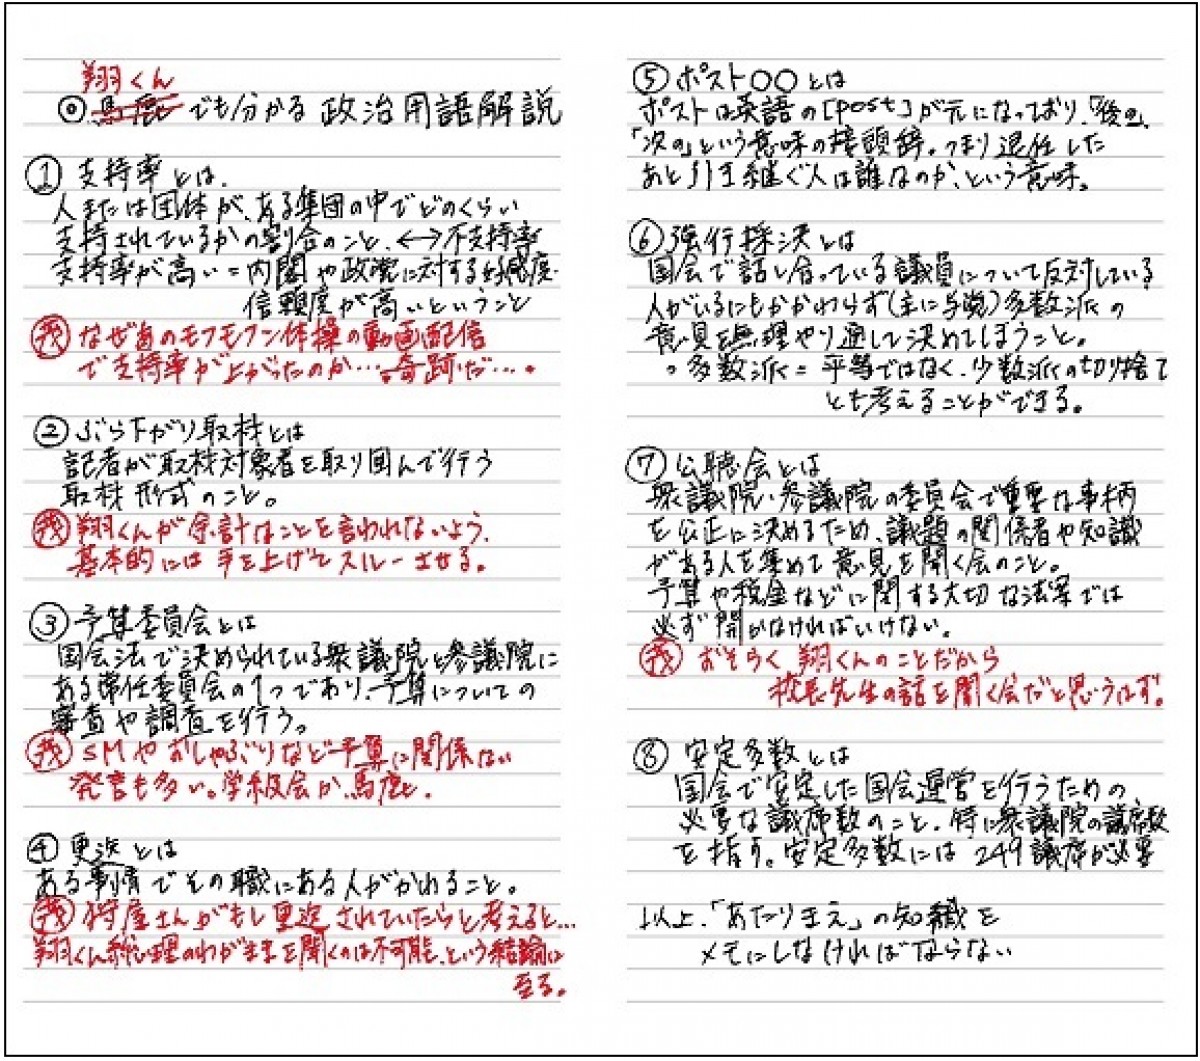 翔くん
◎馬鹿でも分かる政治用語解説
① 支持率とは、
人または団体が、ある集団の中でどのくらい
支持されているかの割合のこと、⟷不支持率
支持率が高い=内閣や政党に対する好感度・
信頼度が高いということ
我 なぜあのモフモフン体操の動画配信
で支持率が上がったのか…。奇跡だ…。
② ぶら下がり取材とは
記者が取材対象者を取り囲んで行う
取材形式のこと。
我 翔くんが余計なことを言われないよう、
基本的には手を上げてスルーさせる。
③ 予算委員会とは
国会法で決められている衆議院と参議院に
ある常任委員会の1つであり、予算についての
審査や調査を行う。
我 SMやおしゃぶりなど予算に関係ない
発言も多い。学級会か、馬鹿と。
④ 更迭とは
ある事情でその職にある人がかわること。
我 狩屋さんがもし更迭されていたらと考えると…
翔くん総理のわがままを聞くのは不可能、という結論に
至る。
⑤ ポスト〇〇とは
ポストは英語の[post]が元になっており、「後の」、
「次の」という意味の接頭辞。つまり退任した
あと引き継ぐ人は誰なのか、という意味。
⑥ 強行採決とは
国会で話し合っている議員について反対している
人がいるにもかかわらず(主に与党)多数派の
意見を無理やり通して決めてしまうこと。
。多数派=平等ではなく、少数派の切り捨て
とも考えることができる。
⑦ 公聴会とは
衆議院・参議院の委員会で重要な事柄
を公正に決めるため、議題の関係者や知識
がある人を集めて意見を聞く会のこと。
予算や税金などに関する大切な法案では
必ず開かなければいけない。
我 おそらく翔くんのことだから
校長先生の話を聞く会だと思うはず。
⑧ 安定多数とは
国会で安定した国会運営を行うための
必要な議席数のこと、特に衆議院の議席数
を指す。安定多数には249議席が必要
以上、「あたりまえ」の知識を
メモにしなければならない